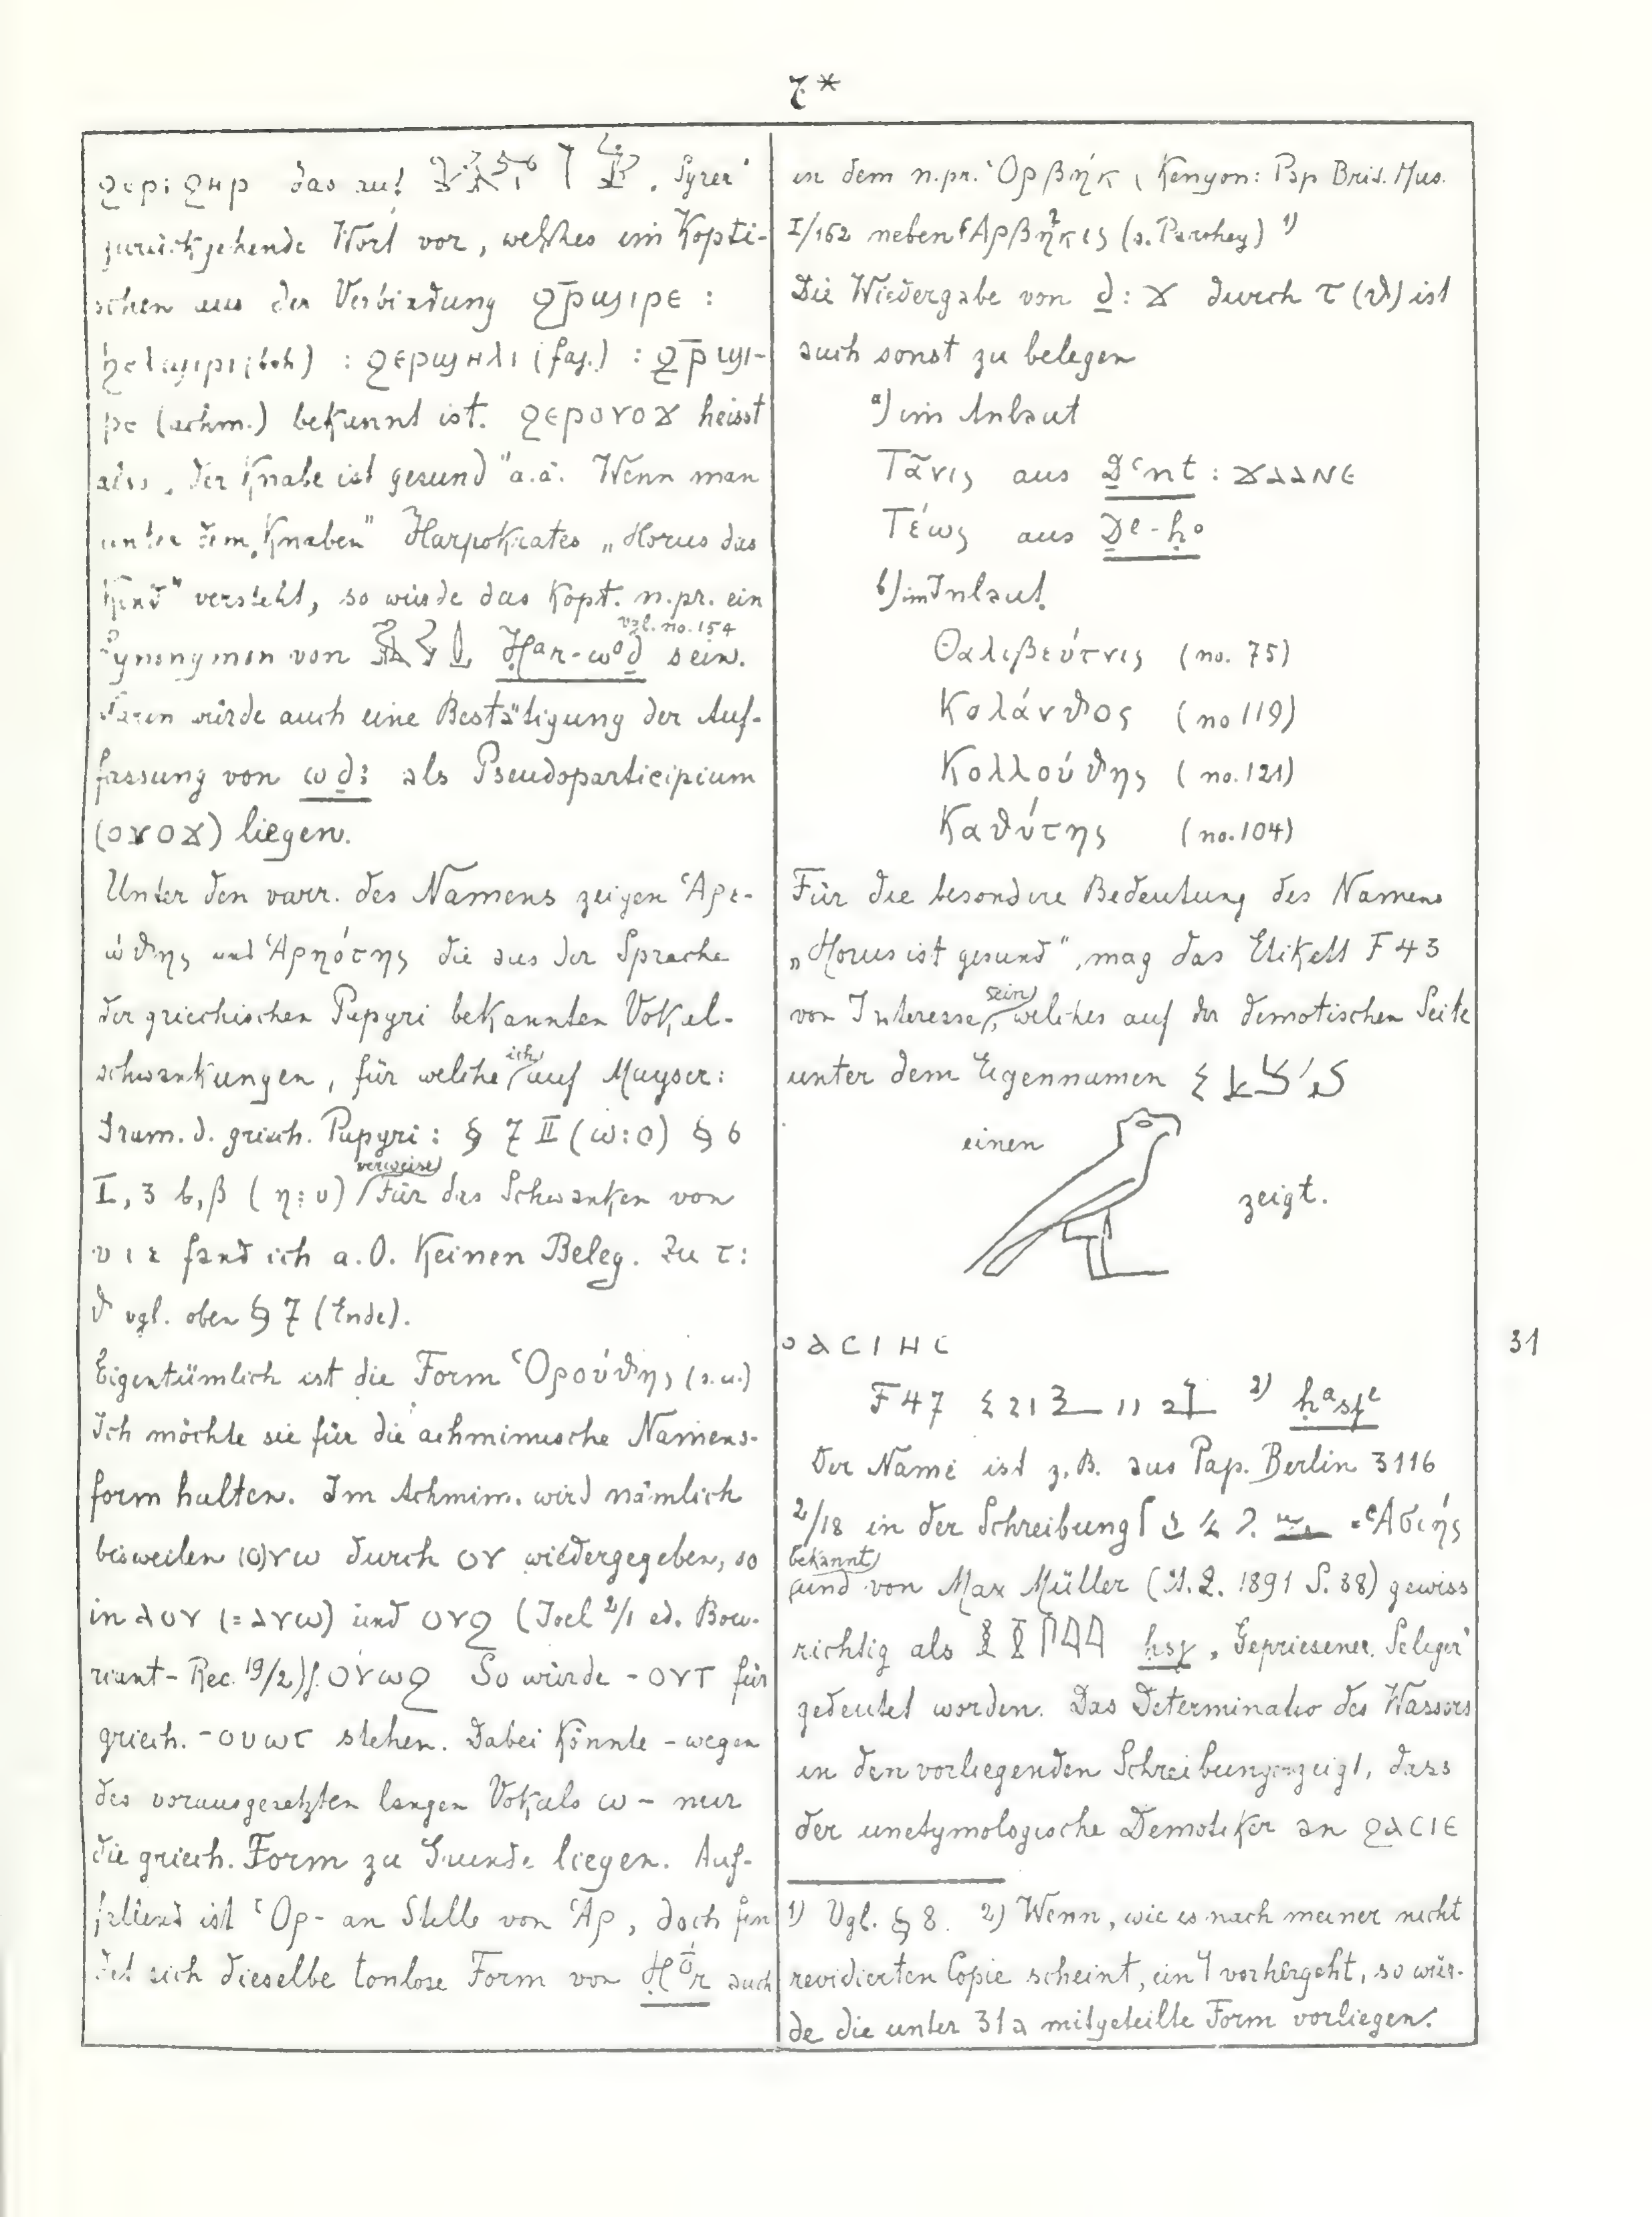 7*
ϩⲉⲣⲓϩⲏⲣ das auf
zurückgehende Wort vor, welches im Kopti-
schen aus der Verbindung ϩⲣ̅ϣⲓⲣⲉ :
(boh) : ϩⲉⲣϣⲏⲗⲓ (faj.) : ϩⲣ̅ϣⲓ-
ⲣⲉ (achm.) bekannt ist. ϩⲉⲣⲟⲩⲟϫ heisst
also „der Knabe ist gesund" o.ä. Wenn man
unter dem „Knaben" Harpokrates „Horus das
Kind" versteht, so würde das Kopt. n.pr. ein
Synonymon von Ḥar-woḏ vgl. no. 154 sein.
Darin würde auch eine Bestätigung der Auf-
fassung von wḏꜣ als Pseudoparticipium
(ⲟⲩⲟϫ) liegen.
Unter den varr. des Namens zeigen Ἁρε-
ώθης und Ἁρυότης die aus der Sprache
der griechischen Papyri bekannten Vokal-
schwankungen, für welche ich auf Mayser:
Gram. d. griech. Papyri: § 7 II (ω:ο) § 6
I, 3 b, β (η:υ) verweise. Für das Schwanken von
υ ι ε fand ich a.O. keinen Beleg. Zu τ:
θ vgl. oben § 7 (Ende).
Eigentümlich ist die Form Ὁρούθης (s.u.)
Ich möchte sie für die achmimische Namens-
form halten. Im Achmim. wird nämlich
bisweilen (ⲟ)ⲩⲱ durch ⲟⲩ wiedergegeben, so
in ⲁⲟⲩ (= ⲁⲩⲱ) und ⲟⲩϩ (Joel 2/1 ed. Bou-
riant - Rec. 19/2) f. ⲟⲩⲱϩ So würde - ⲟⲩⲧ für
griech. -ουωτ stehen. Dabei könnte - wegen
des vorausgesetzten langen Vokals ω - nur
die griech. Form zu Grunde liegen. Auf-
fallend ist Ὁρ- an Stelle von Ἁρ, doch fin
det sich dieselbe tonlose Form von Ḥōr auch
in dem n.pr. Ὁρβῆκ (Kenyon: Pap Brit. Mus.
I/162 neben Ἁρβῆκις (s. Parthey) 1)
Die Wiedergabe von ḏ: ϫ durch τ (θ) ist
auch sonst zu belegen
a) im Anlaut
Τᾶνις aus Ḏꜥnt : ϫⲁⲁⲛⲉ
Τέως aus Ḏe-ḥo
b) im Inlaut
Θαλιβεύτνις (no. 75)
Κολάνθος (no 119)
Κολλούθης (no. 121)
Καθύτης (no. 104)
Für die besondere Bedeutung des Namens
„Horus ist gesund", mag das Etikett F 43
von Interesse sein, welches auf der demotischen Seite
unter dem Eigennamen
einen zeigt.
ϩⲁⲥⲓⲏⲥ 31
F 47 2) ḥasje
Der Name ist z.B. aus Pap. Berlin 3116
2/18 in der Schreibung = Ἁσιῆς
bekannt und von Max Müller (Ä.Z. 1891 S. 88) gewiss
richtig als ḥsj „Gepriesener, Seliger"
gedeutet worden. Das Determinativ des Wassers
in den vorliegenden Schreibungen zeigt, dass
der unetymologische Demotiker an ϩⲁⲥⲓⲉ
1) Vgl. § 8. 2) Wenn, wie es nach meiner nicht
revidierten Copie scheint, ein vorhergeht, so wür-
de die unter 31a mitgeteilte Form vorliegen.